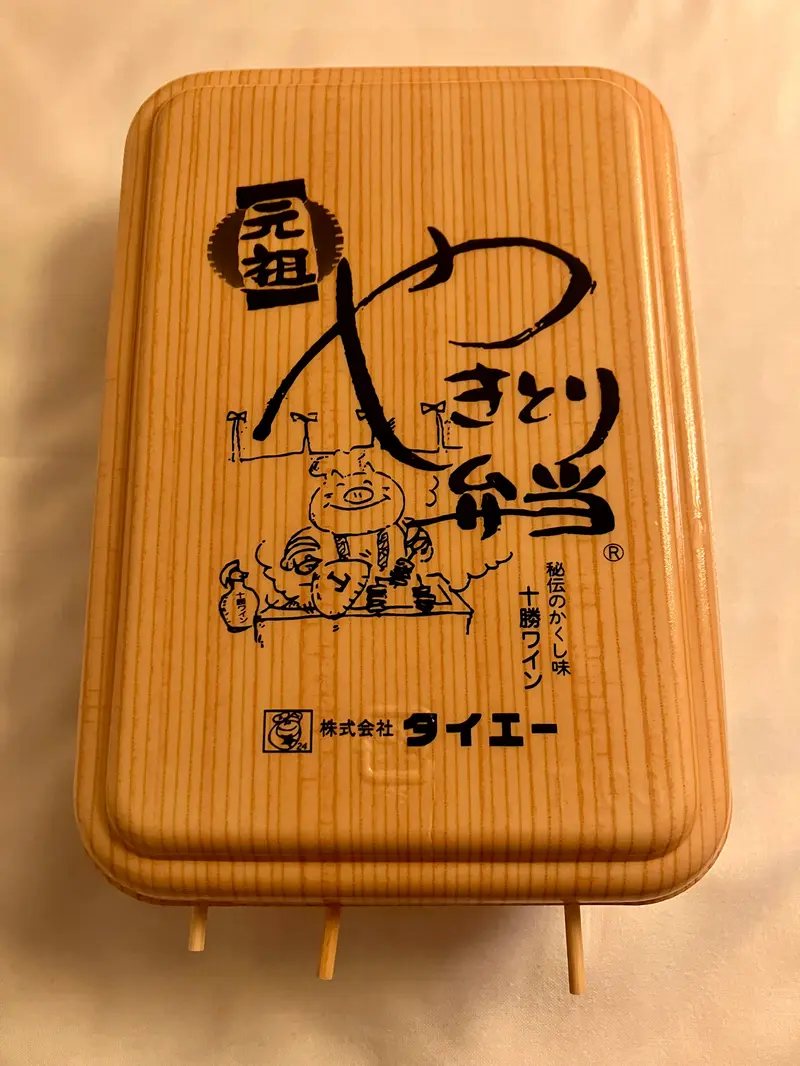 元祖
やきとり
弁当
®
秘伝のかくし味
十勝ワイン
十勝ワイン
株式会社 ダイエー
24